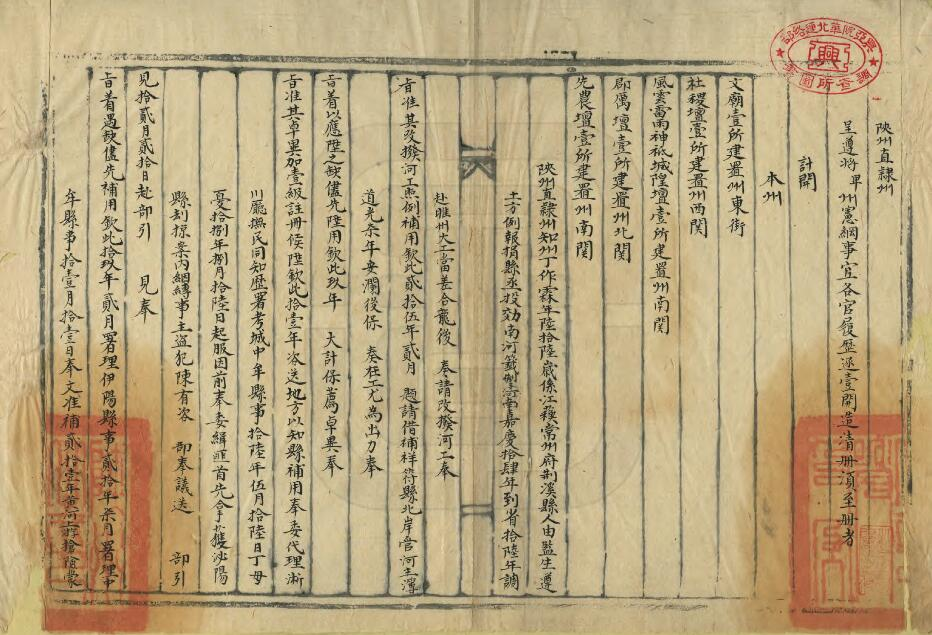 陝州直隸州
呈遵將卑州憲綱事宜各官履歷逐壹開造清冊須至冊者
計開
本州
文廟壹所建置州東街
社稷壇壹所建置州西関
風雲雷雨神祗城隍壇壹所建置州南関
郡厲壇壹所建置州北関
先農壇壹所建置州南関
陝州直隸州知州丁作霖年陸拾陸歲係江蘇常州府荆溪縣人由監生遵
土方例報捐縣丞投効南河籤制河南嘉慶拾肆年到省拾陸年調
赴睢州大工當差合龍後 奏請改撥河工奉
旨准其改撥河工照例補用欽此貳拾伍年貳月 題請借補祥符縣北岸管河主簿
道光柒年安瀾後保 奏在工尤為出力奉
旨着以應陞之缺儘先陞用欽此玖年 大計保薦卓異奉
旨准其卓異加壹級註冊候陞欽此拾壹年咨送地方以知縣補用奉委代理淅
川廳撫民同知歷署考城中牟縣事拾陸年伍月拾陸日丁母
憂拾捌年捌月拾陸日起服因前奉委緝匪首先拿獲泌陽
縣刦掠案內綑縛事主盜犯陳有咨 部奉議送 部引
見拾貳月貳拾日赴部引 見奉
旨着遇缺儘先補用欽此拾玖年貳月署理伊陽縣事貳拾年柒月署理中
牟縣事拾壹月拾壹日奉文准補貳拾壹年黃河上游搶險蒙
興亞院華北連絡部
調查所圖書
興